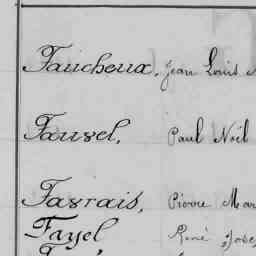 Faucheux, Jean Louis
Fauvel, Paul Noël
Favrais, Pierre Mar
Fayel René Jose